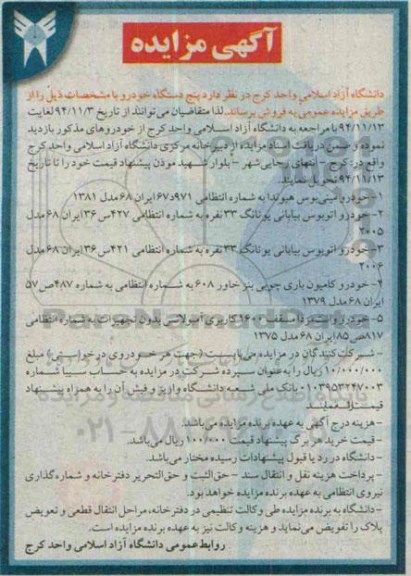 آگهی مزایده
دانشگاه آزاد اسلامی واحد کرج در نظر دارد پنج دستگاه خودرو با مشخصات ذیل را از
طریق مزایده عمومی به فروش برساند. لذا متقاضیان می توانند از تاریخ ۹۴/۱۱/۳ لغایت
۹۴/۱۱/۱۳ با مراجعه به دانشگاه آزاد اسلامی واحد کرج از خودروهای مذکور بازدید
نموده و ضمن دریافت اسناد مزایده از دبیرخانه مرکزی دانشگاه آزاد اسلامی واحد کرج
واقع در: کرج - انتهای رجایی شهر - بلوار شهید موذن پیشنهاد قیمت خود را تا تاریخ
۹۴/۱۱/۱۳ تحویل نمایند.
۱- خودرو مینی بوس هیوندا به شماره انتظامی ۹۷۱د۶۷ ایران ۶۸ مدل ۱۳۸۱
۲- خودرو اتوبوس بیابانی یوتانگ ۳۳ نفره به شماره انتظامی ۴۲۷س۳۶ ایران ۶۸ مدل
۲۰۰۵
۳- خودرو اتوبوس بیابانی یوتانگ ۳۳ نفره به شماره انتظامی ۴۲۱س۳۶ ایران ۶۸ مدل
۲۰۰۶
۴- خودرو کامیون باری چوبی بنز خاور ۶۰۸ به شماره انتظامی به شماره ۴۸۷ص۵۷
ایران ۶۸ مدل ۱۳۷۹
۵- خودرو وانت مزدا سقف ۱۶۰۰ کاربری آمبولانس بدون تجهیزات به شماره انتظامی
۸۱۷ص۸۵ ایران ۶۸ مدل ۱۳۷۵
- شرکت کنندگان در مزایده می بایست (جهت هر خودروی درخواستی) مبلغ
۱۰/۰۰۰/۰۰۰ ریال را به عنوان سپرده شرکت در مزایده به حساب سیبا شماره
۰۱۰۳۹۵۳۲۴۷۰۰۳ بانک ملی شعبه دانشگاه واریز و فیش آن را به همراه پیشنهاد
قیمت ارائه نمایند.
- هزینه درج آگهی به عهده برنده مزایده می باشد.
- قیمت خرید هر برگ پیشنهاد قیمت ۱۰۰/۰۰۰ ریال می باشد.
- دانشگاه در رد یا قبول پیشنهادات رسیده مختار می باشد.
- پرداخت هزینه نقل و انتقال سند - حق الثبت و حق التحریر دفترخانه و شماره گذاری
نیروی انتظامی به عهده برنده مزایده خواهد بود.
- دانشگاه به برنده مزایده طی وکالت تنظیمی در دفترخانه، مراحل انتقال قطعی و تعویض
پلاک را تفویض می نماید و هزینه وکالت نیز به عهده برنده مزایده است.
روابط عمومی دانشگاه آزاد اسلامی واحد کرج